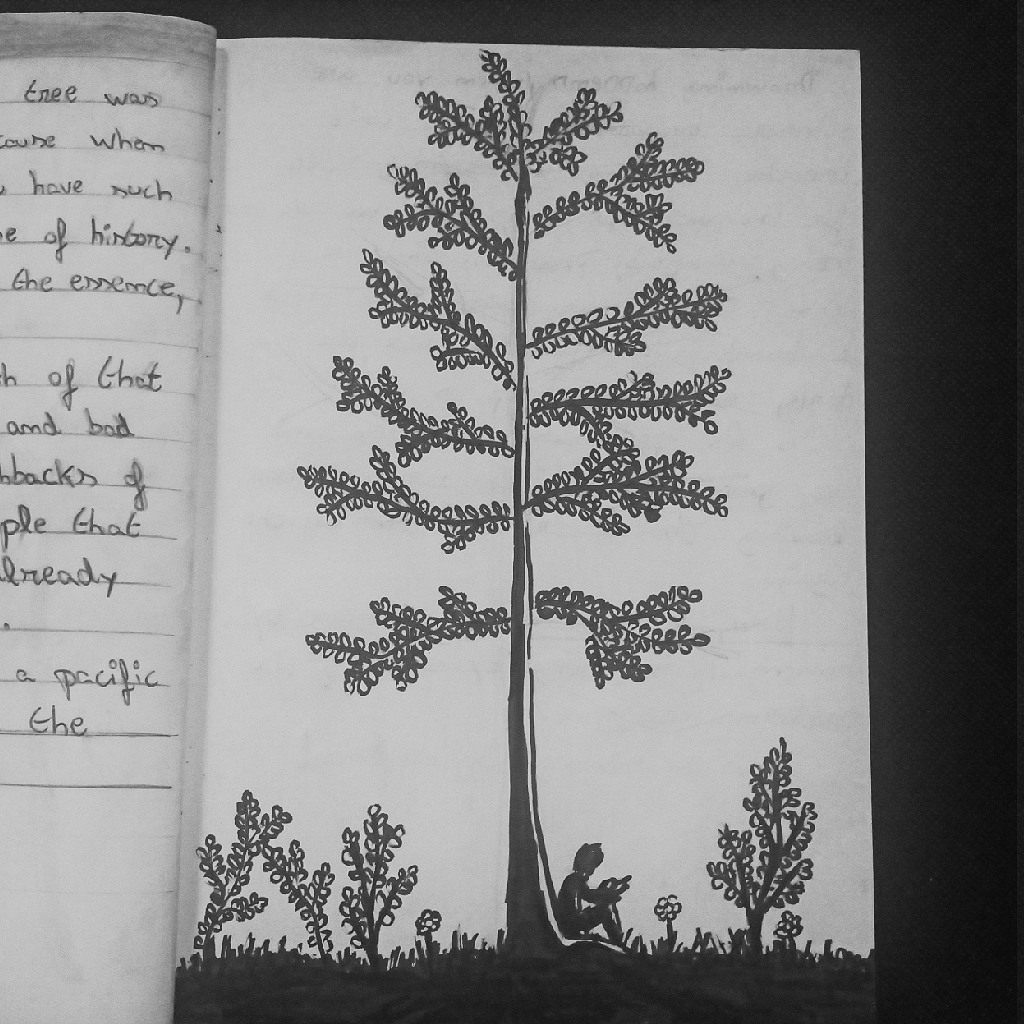 tree was
cause when
have such
of history.
the essence,
of that
and bad
hbacks of
ple that
already
.
a pacific
the